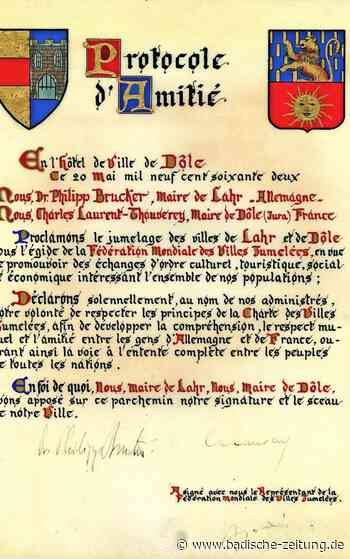 Protocole
d'Amitié
En l'hôtel de Ville de Dôle
Ce 20 Mai mil neuf cent soixante deux
Nous, Dr. Philipp Brucker, Maire de Lahr - Allemagne -
Nous, Charles Laurent-Thouverey, Maire de Dôle (Jura) France
Proclamons le jumelage des villes de Lahr et de Dôle
ous l'égide de la Fédération Mondiale des Villes Jumelées, en vue
e promouvoir des échanges d'ordre culturel, touristique, social
t économique intéressant l'ensemble de nos populations ;
Déclarons solennellement, au nom de nos administrés,
otre volonté de respecter les principes de la Charte des Villes
umelées, afin de développer la compréhension, le respect mu-
uel et l'amitié entre les gens d'Allemagne et de France, ou-
rant ainsi la voie à l'entente complète entre les peuples
e toutes les nations.
En foi de quoi, Nous, Maire de Lahr, Nous, Maire de Dôle,
vons apposé sur ce parchemin notre signature et le sceau
e notre Ville.
Dr. Philipp Brucker
A signé avec nous le Représentant de la
Fédération Mondiale des Villes Jumelées.
© www.badische-zeitung.de